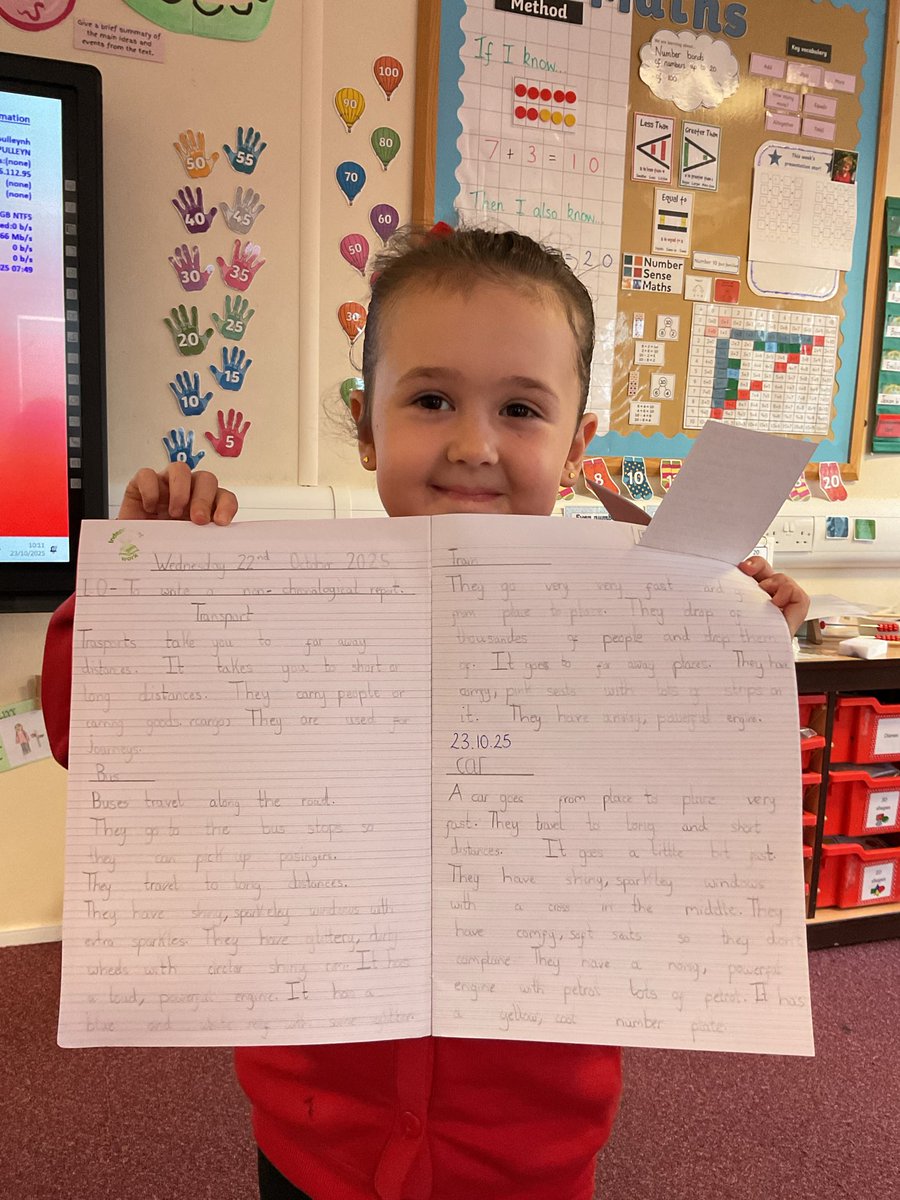 Give a brief summary
of the main ideas and
events from the text.
mation
PULLEYN
s:(none)
5.112.95
(none)
(none)
GB NTFS
ed:0 b/s
66 Mb/s
0 b/s
0 b/s
25 07:49
10:11
23/10/2025
50 55
40 45
30 35
20 25
10 15
5
0
100
90
80
70
60
50
30
Method
Maths
If I know...
7 + 3 = 10
Then I also know...
= 20
We are learning about...
Number bonds
of numbers up to 20
of 100
Key vocabulary
Less Than
Greater Than
Equal to
Number
Sense
Maths
This week's
presentation star!
8 10 20
Wednesday 22nd October 2025
L.O- To write a non-chronological report.
Transport
Trasports take you to far away
distances. It takes you to short or
long distances. They carry people or
caring goods (cargo). They are used for
Journeys.
Bus
Buses travel along the road.
They go to the bus stops so
they can pick up pasingers.
They travel to long distances.
They have shiny, sparkeley windows with
extra sparkles. They have glittery, dirty
wheels with circlar shiny rims. It has
a loud, powerful engine. It has a
blue and white
Train
They go very very fast and
from place to place. They drop of
thousandes of people and drop them
of. It goes to far away places. They have
pink seats with lots of strips on
it. They have powerful engine.
23.10.25
car
A car goes from place to place very
fast. They travel to long and short
distances. It goes a little bit fast.
They have shiny, sparkley windows
with a cross in the middle. They
have compy, soft seats so they don't
complane. They have a noisy, powerful
engine with petrol lots of petrol. It has
a yellow, cool number plate.